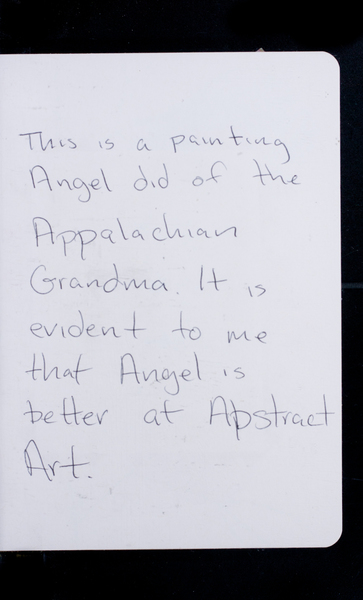 This is a painting
Angel did of the
Appalachian
Grandma. It is
evident to me
that Angel is
better at Apstract
Art.